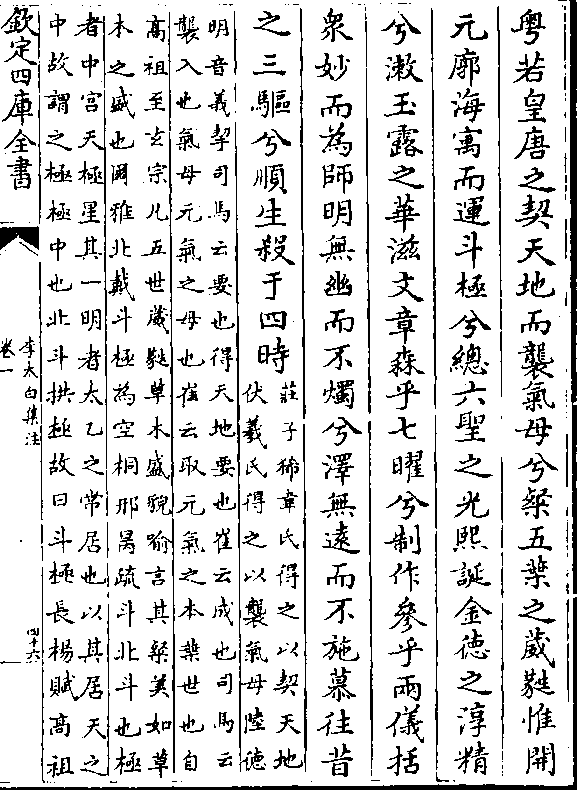 粤若皇唐之契天地而襲氣母兮粲五葉之葳㽔惟開
元廓海寓而運斗極兮總六聖之光熙誕金德之淳精
兮漱玉露之華滋文章森乎七曜兮制作參乎兩儀括
衆妙而為師明無幽而不燭兮澤無逺而不施慕往昔
之三驅兮順生殺于四時
莊子狶韋氏得之以契天地
伏羲氏得之以襲氣母陸德
明音義契司馬云要也得天地要也崔云成也司馬云
襲入也氣母元氣之母也崔云取元氣之本葉世也自
髙祖至玄宗凡五世葳㽔草木盛貌喻言其粲美如草
木之盛也爾雅北戴斗極為空桐邢昺疏斗北斗也極
者中宫天極星其一明者太乙之常居也以其居天之
中故謂之極極中也北斗拱極故曰斗極長楊賦髙祖
欽定四庫全書
李太白集注
卷一
四十六